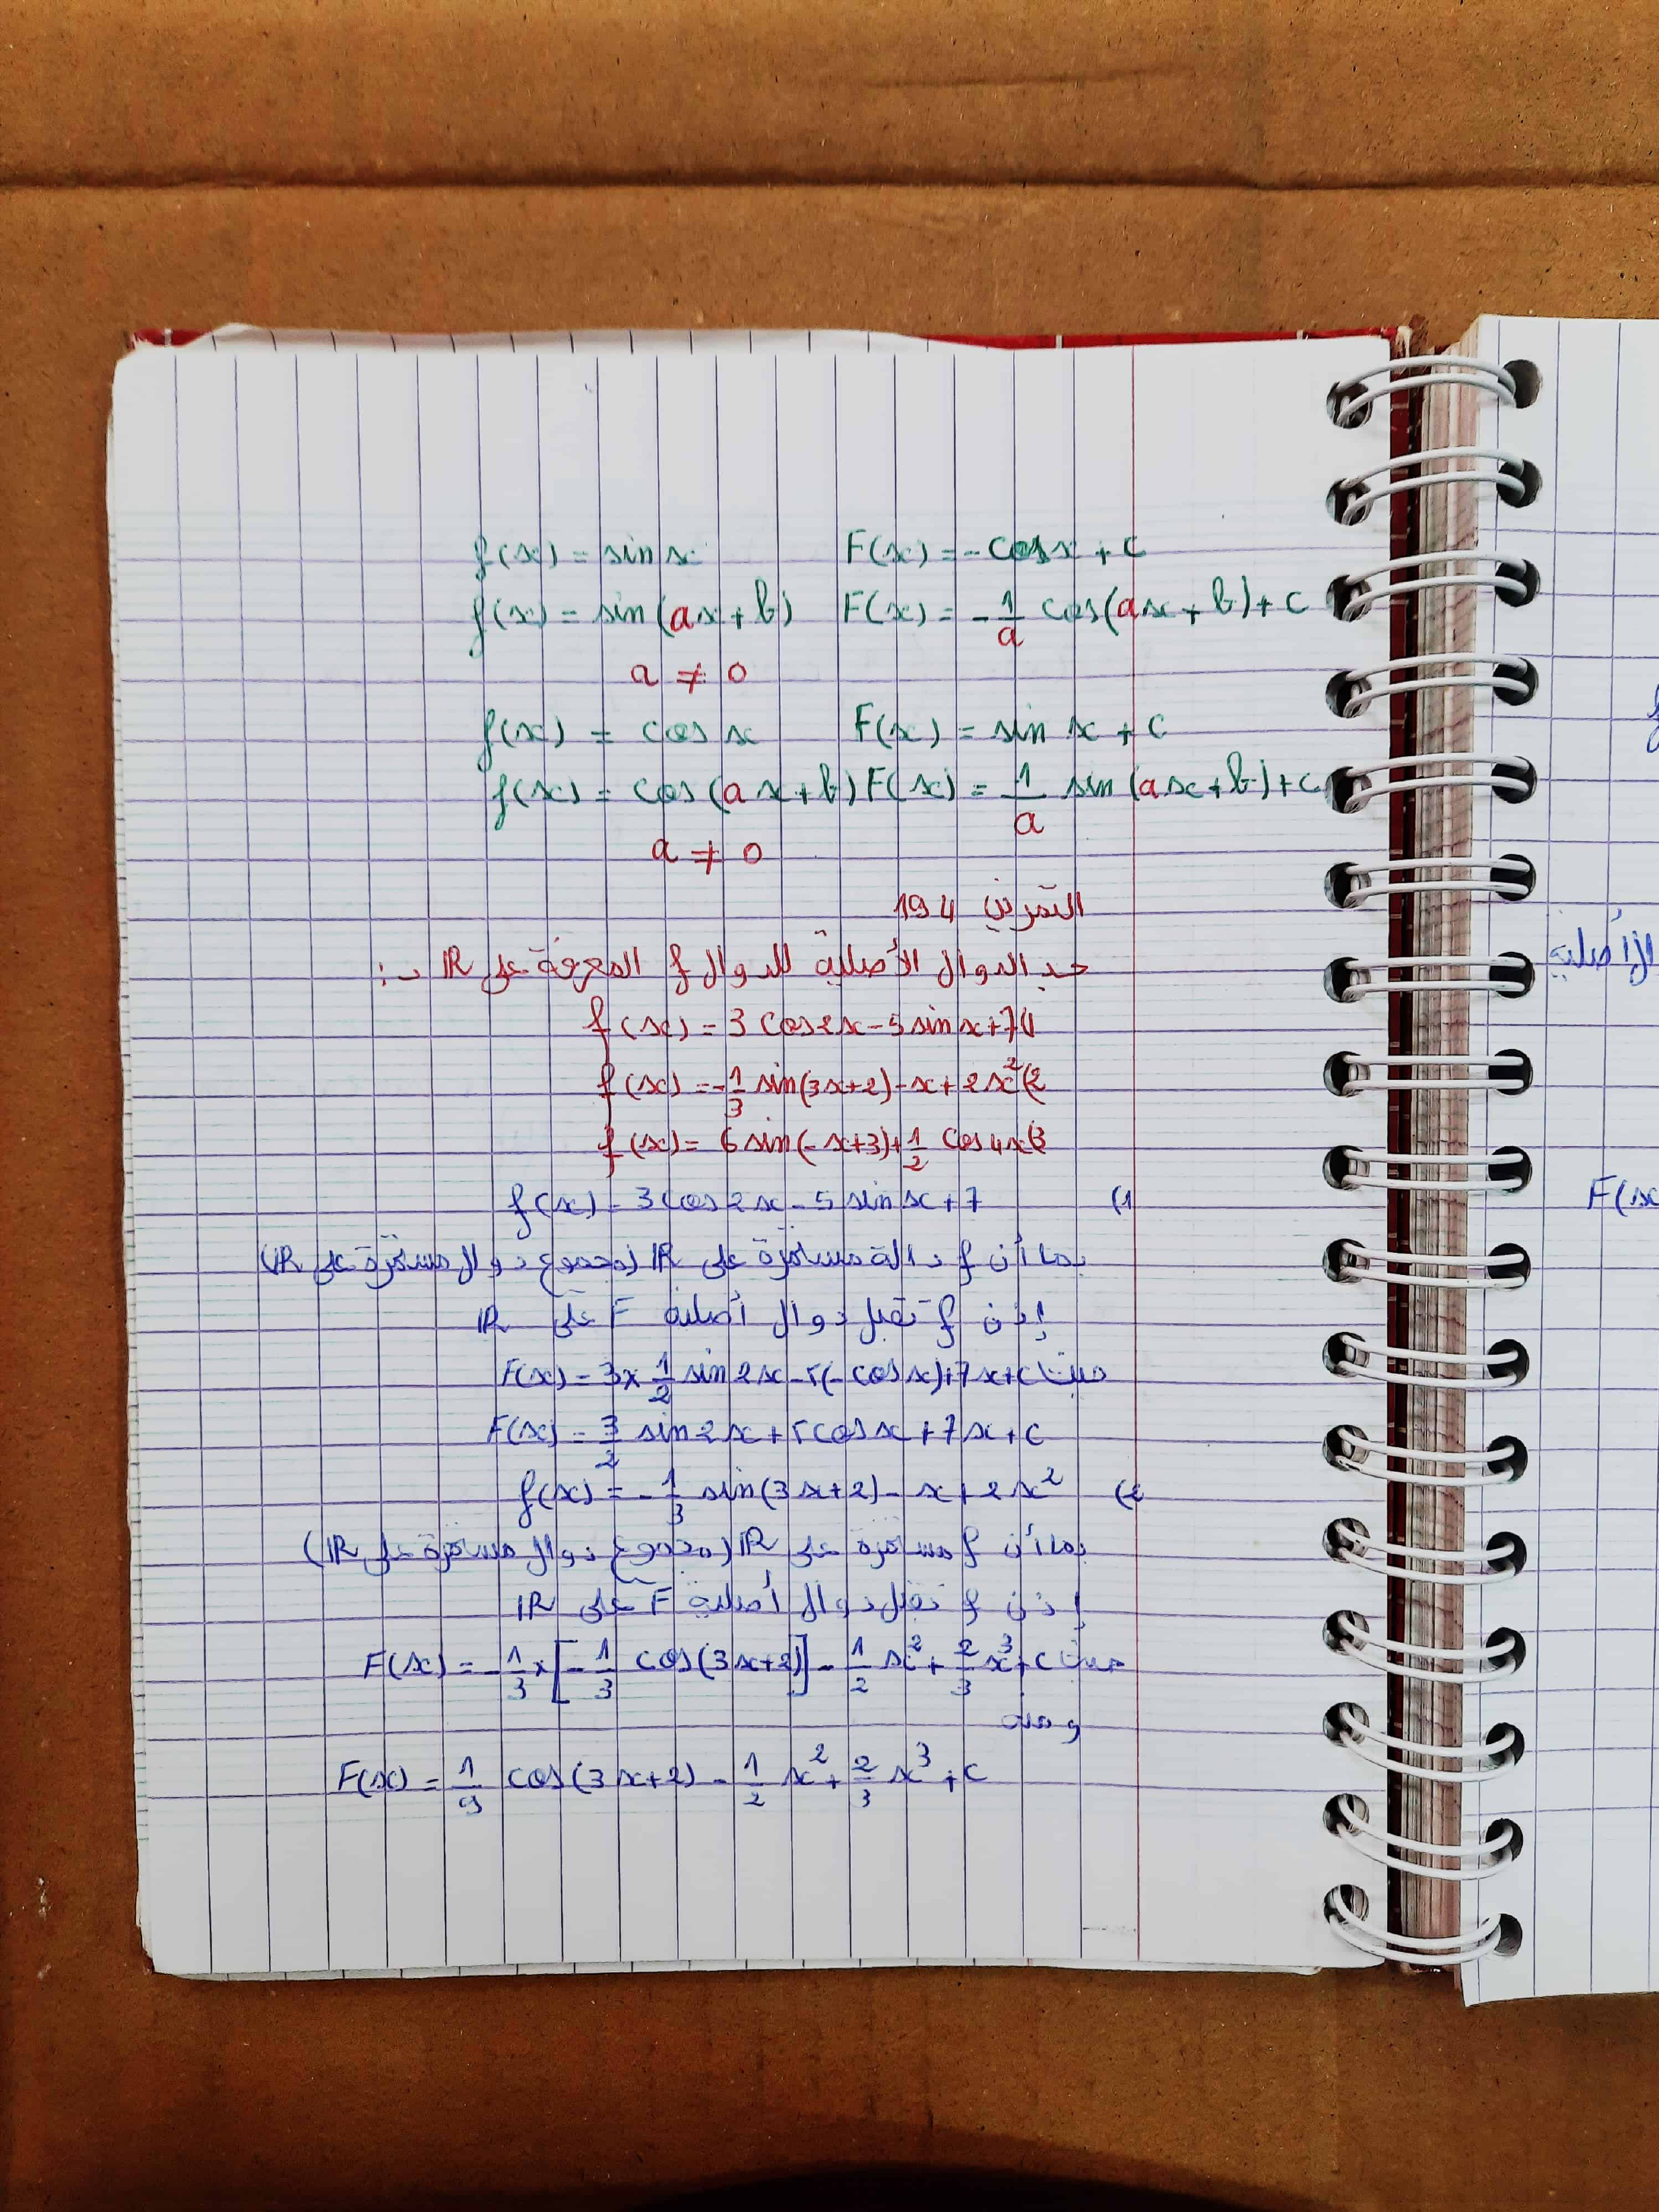 f(x) = sin x F(x) = - cos x + c
f(x) = sin(ax + b) F(x) = - 1/a cos(ax + b) + c
a ≠ 0
f(x) = cos x F(x) = sin x + c
f(x) = cos(ax + b) F(x) = 1/a sin(ax + b) + c
a ≠ 0
التمرين 194
حدد الدوال الأصلية للدوال f المعرفة على IR بـ:
1) f(x) = 3 cos 2x - 5 sin x + 7
2) f(x) = - 1/3 sin(3x + 2) - x + 2x²
3) f(x) = 6 sin(- x + 3) + 1/2 cos 4x
1) f(x) = 3 cos 2x - 5 sin x + 7
بما أن f دالة مستمرة على IR (مجموع دوال مستمرة على IR)
إذن f تقبل دوال أصلية F على IR
حيث F(x) = 3 × 1/2 sin 2x - 5(- cos x) + 7x + c
F(x) = 3/2 sin 2x + 5 cos x + 7x + c
2) f(x) = - 1/3 sin(3x + 2) - x + 2x²
بما أن f مستمرة على IR (مجموع دوال مستمرة على IR)
إذن f تقبل دوال أصلية F على IR
حيث F(x) = - 1/3 × [- 1/3 cos(3x + 2)] - 1/2 x² + 2/3 x³ + c
ومنه
F(x) = 1/9 cos(3x + 2) - 1/2 x² + 2/3 x³ + c
الأصلية
F(x